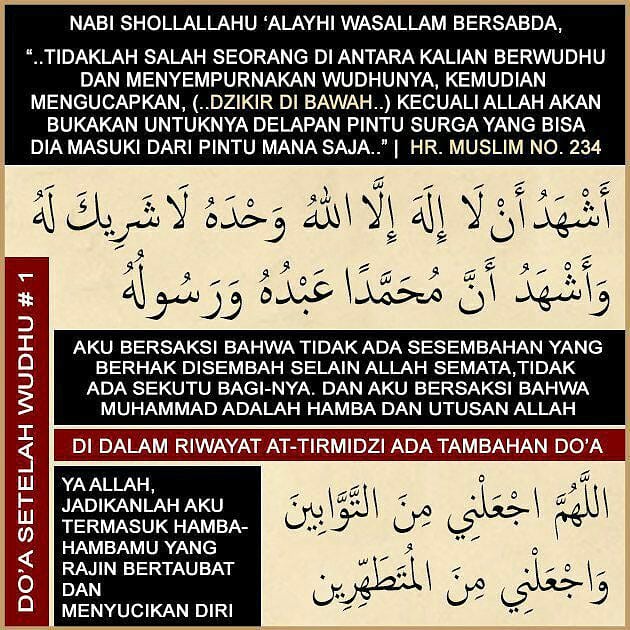 NABI SHOLLALLAHU ‘ALAYHI WASALLAM BERSABDA,
“..TIDAKLAH SALAH SEORANG DI ANTARA KALIAN BERWUDHU
DAN MENYEMPURNAKAN WUDHUNYA, KEMUDIAN
MENGUCAPKAN, (..DZIKIR DI BAWAH..) KECUALI ALLAH AKAN
BUKAKAN UNTUKNYA DELAPAN PINTU SURGA YANG BISA
DIA MASUKI DARI PINTU MANA SAJA..” | HR. MUSLIM NO. 234
أَشْهَدُ أَنْ لَا إِلَهَ إِلَّا اللهُ وَحْدَهُ لَا شَرِيكَ لَهُ
وَأَشْهَدُ أَنَّ مُحَمَّدًا عَبْدُهُ وَرَسُولُهُ
DO’A SETELAH WUDHU # 1
AKU BERSAKSI BAHWA TIDAK ADA SESEMBAHAN YANG
BERHAK DISEMBAH SELAIN ALLAH SEMATA,TIDAK
ADA SEKUTU BAGI-NYA. DAN AKU BERSAKSI BAHWA
MUHAMMAD ADALAH HAMBA DAN UTUSAN ALLAH
DI DALAM RIWAYAT AT-TIRMIDZI ADA TAMBAHAN DO’A
اللَّهُمَّ اجْعَلْنِي مِنَ التَّوَّابِينَ
وَاجْعَلْنِي مِنَ الْمُتَطَهِّرِين
YA ALLAH,
JADIKANLAH AKU
TERMASUK HAMBA-
HAMBAMU YANG
RAJIN BERTAUBAT
DAN
MENYUCIKAN DIRI